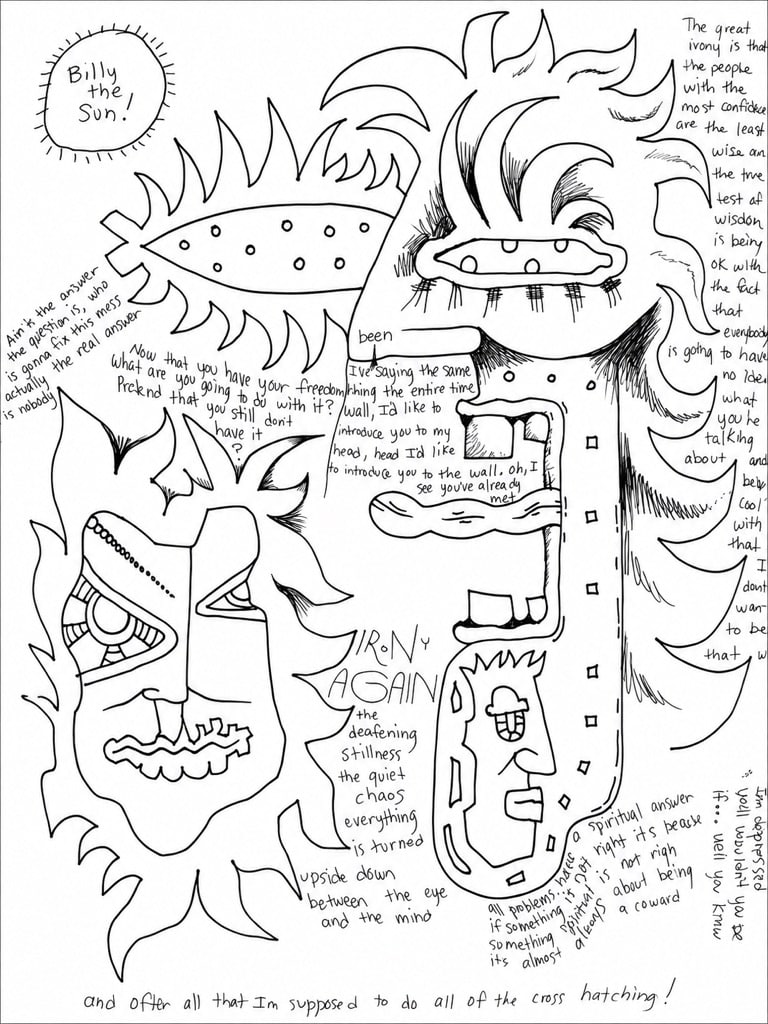 Billy
the
Sun!
The great
irony is that
the people
with the
most confidece
are the least
wise an
the true
test of
wisdon
is being
ok with
the fact
that
everybody
is going to have
no idea
what
you're
talking
about and
being
cool
with
that
I
dont
wan-
to be
that w
Ain't the answer
the question is, who
is gonna fix this mess
actually the real answer
is nobody
Now that you have your freedom
what are you going to do with it?
Pretend that you still don't
have it
?
been
I've saying the same
thing the entire time
wall, I'd like to
introduce you to my
head, head I'd like
to introduce you to the wall. oh, I
see you've already
met
IRONY
AGAIN
the
deafening
stillness
the quiet
chaos
everything
is turned
upside down
between the eye
and the mind
all problems have a spiritual answer
if something is not right its becase
something spiritual is not righ
its almost always about being
a coward
I'm oppressed
... you'll wouldn't you be
if... well you know
and after all that Im supposed to do all of the cross hatching!